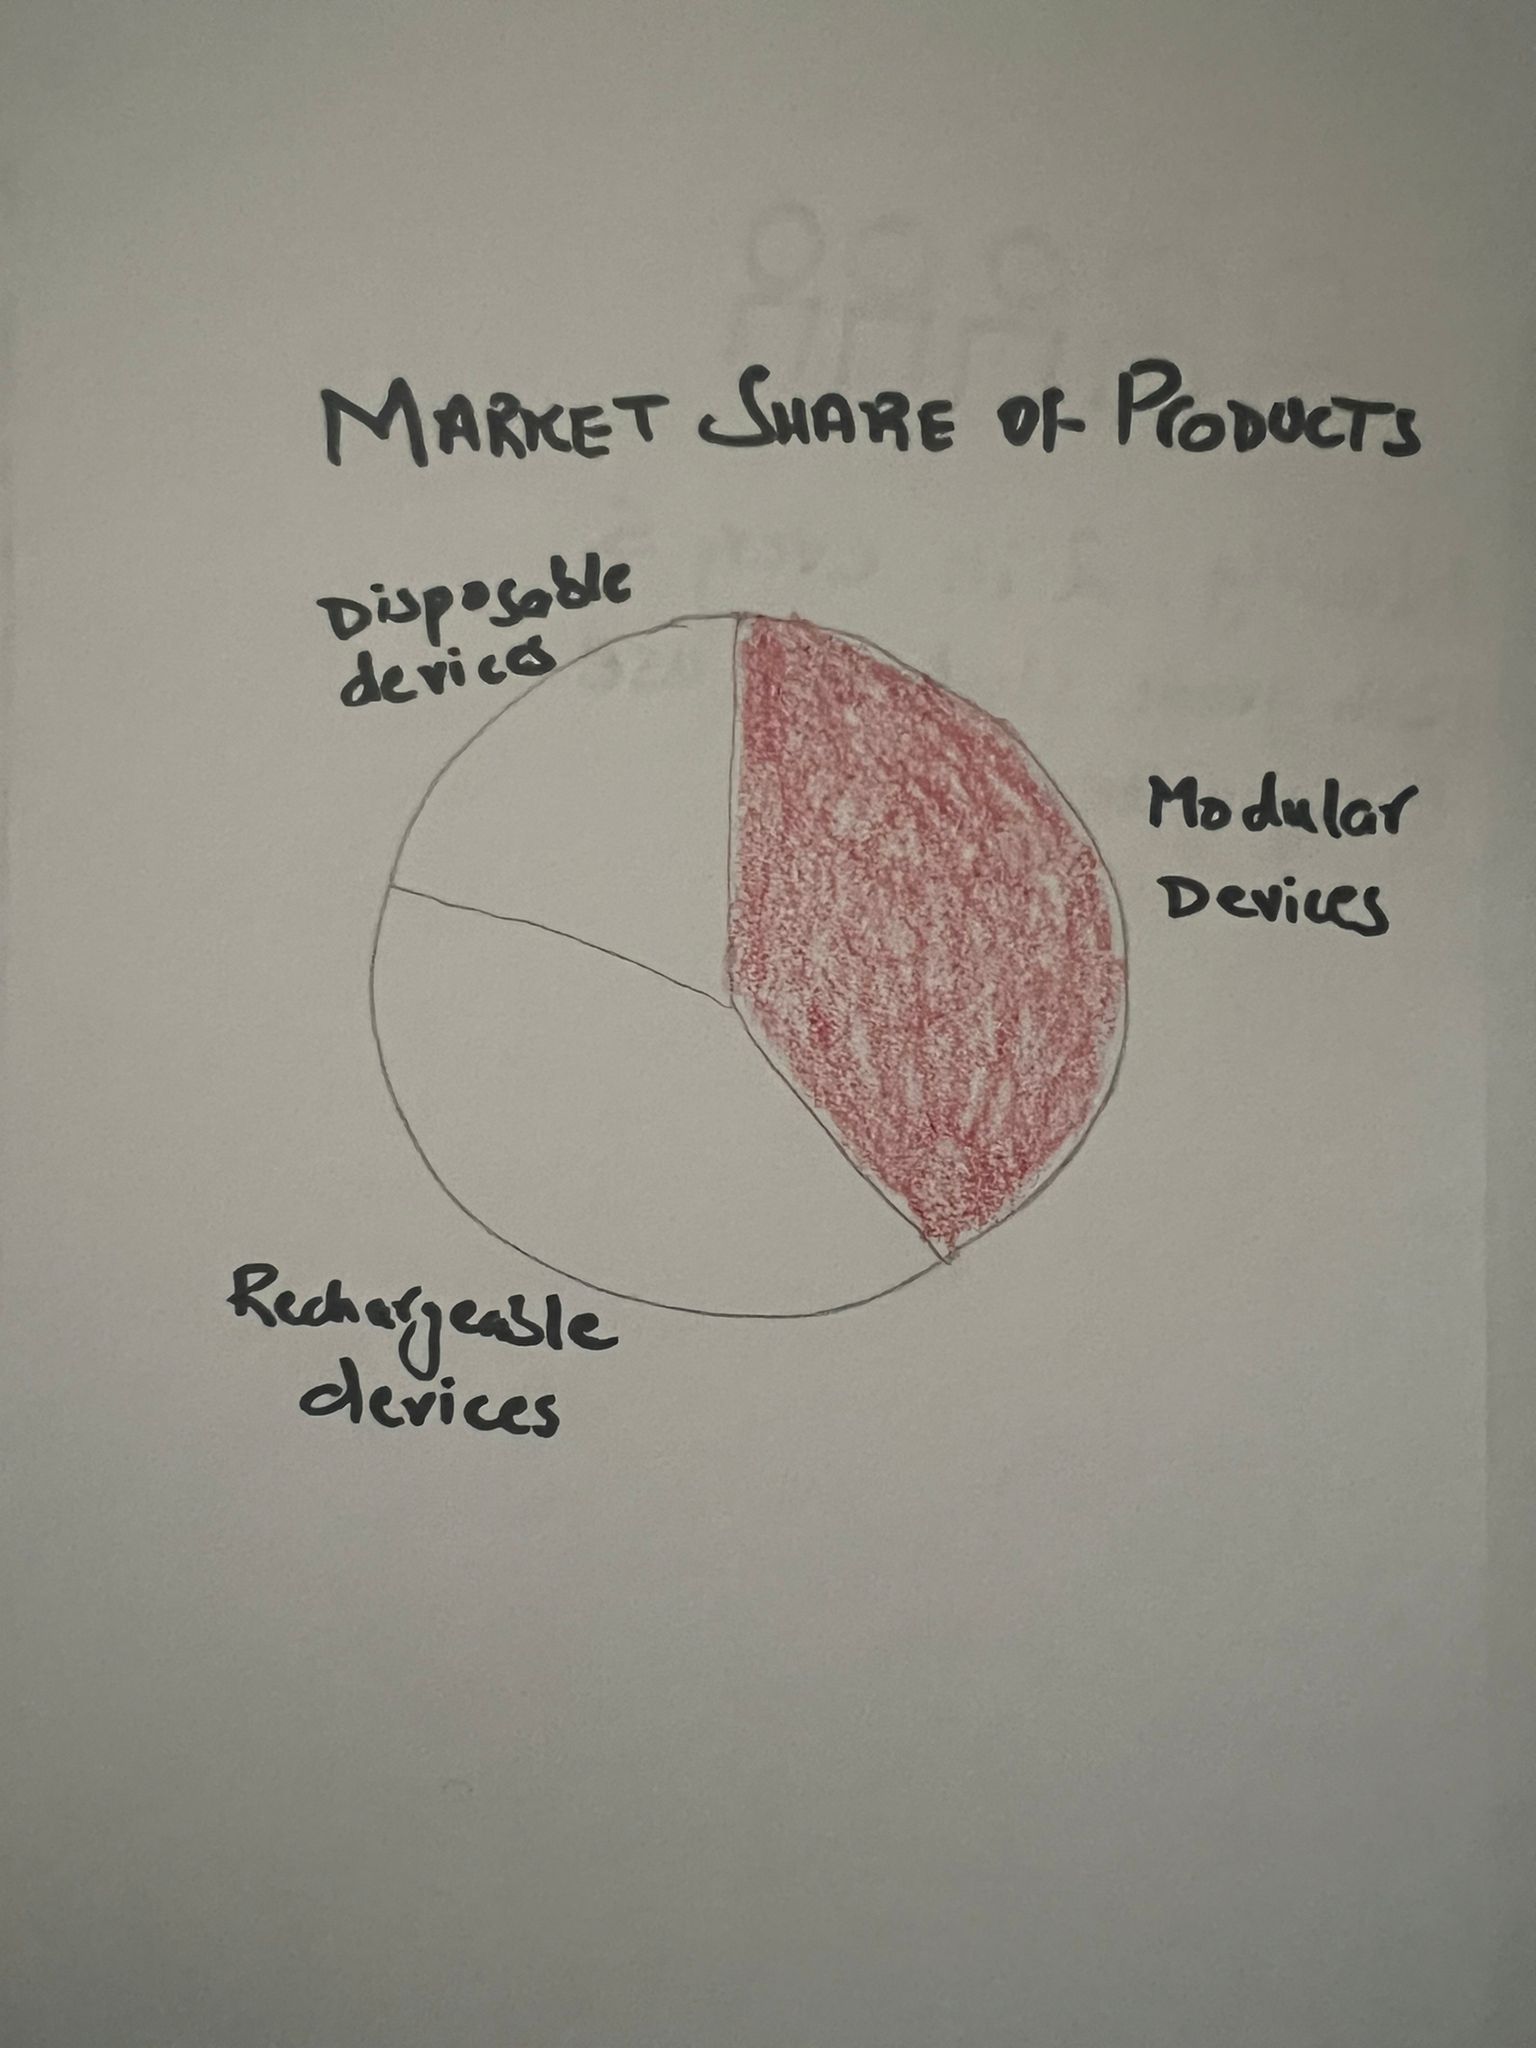 MARKET SHARE OF PRODUCTS
Disposable
devices
Modular
Devices
Rechargeable
devices